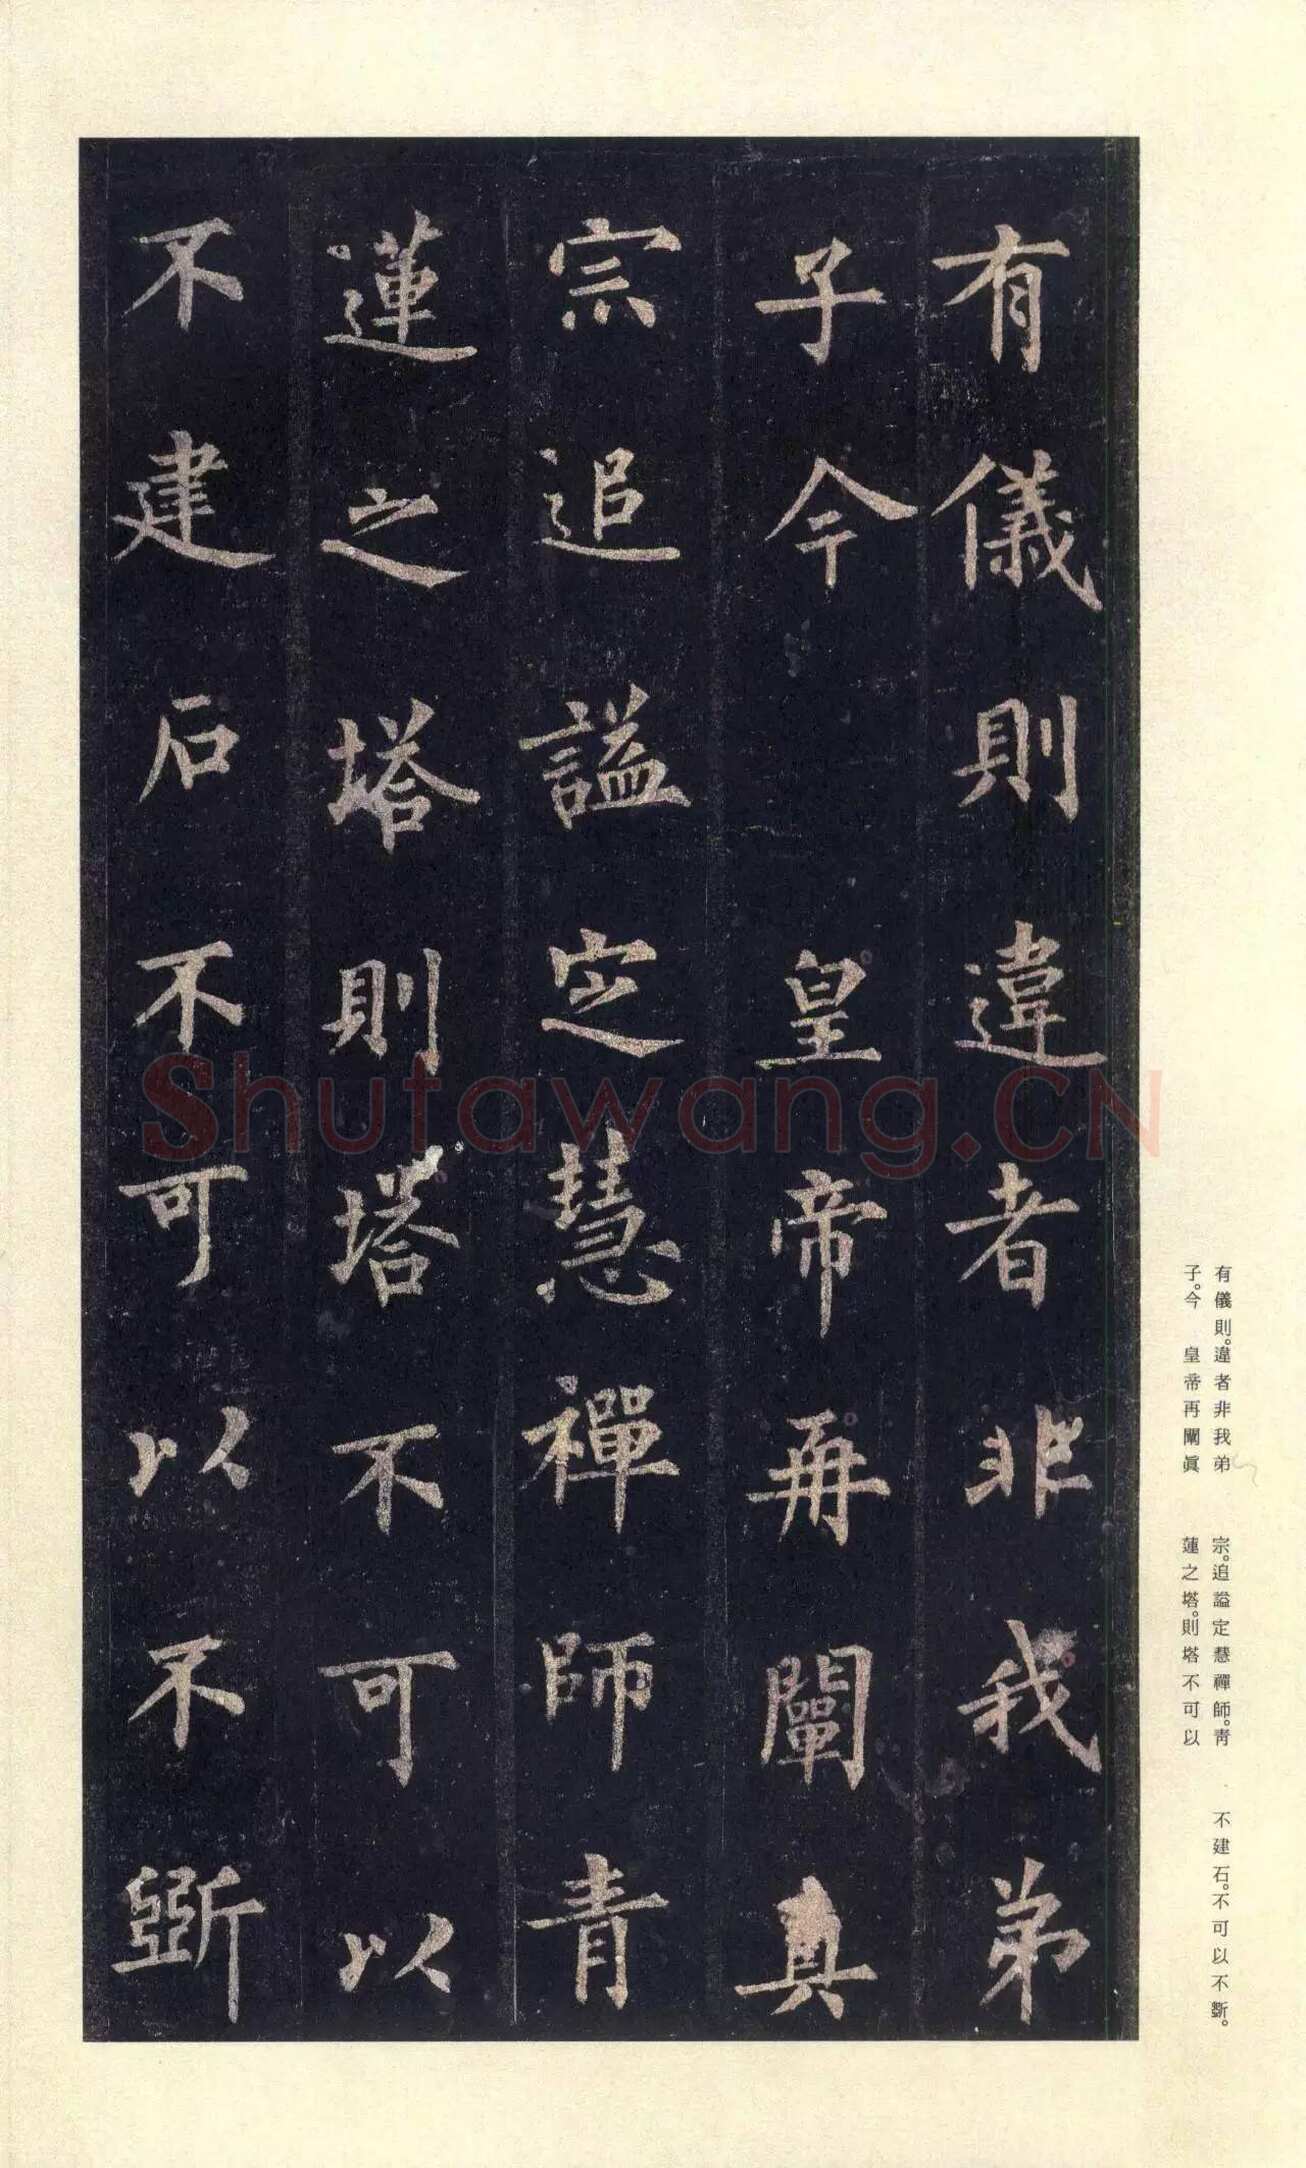 有儀則違者非我弟
子今　皇帝再闡真
宗追謚定慧禪師青
蓮之塔則塔不可以
不建石不可以不斲
有儀則。違者非我弟
子。今　皇帝再闡眞
宗。追謚定慧禪師。靑
蓮之塔。則塔不可以
不建石。不可以不斲。
Shufawang.CN